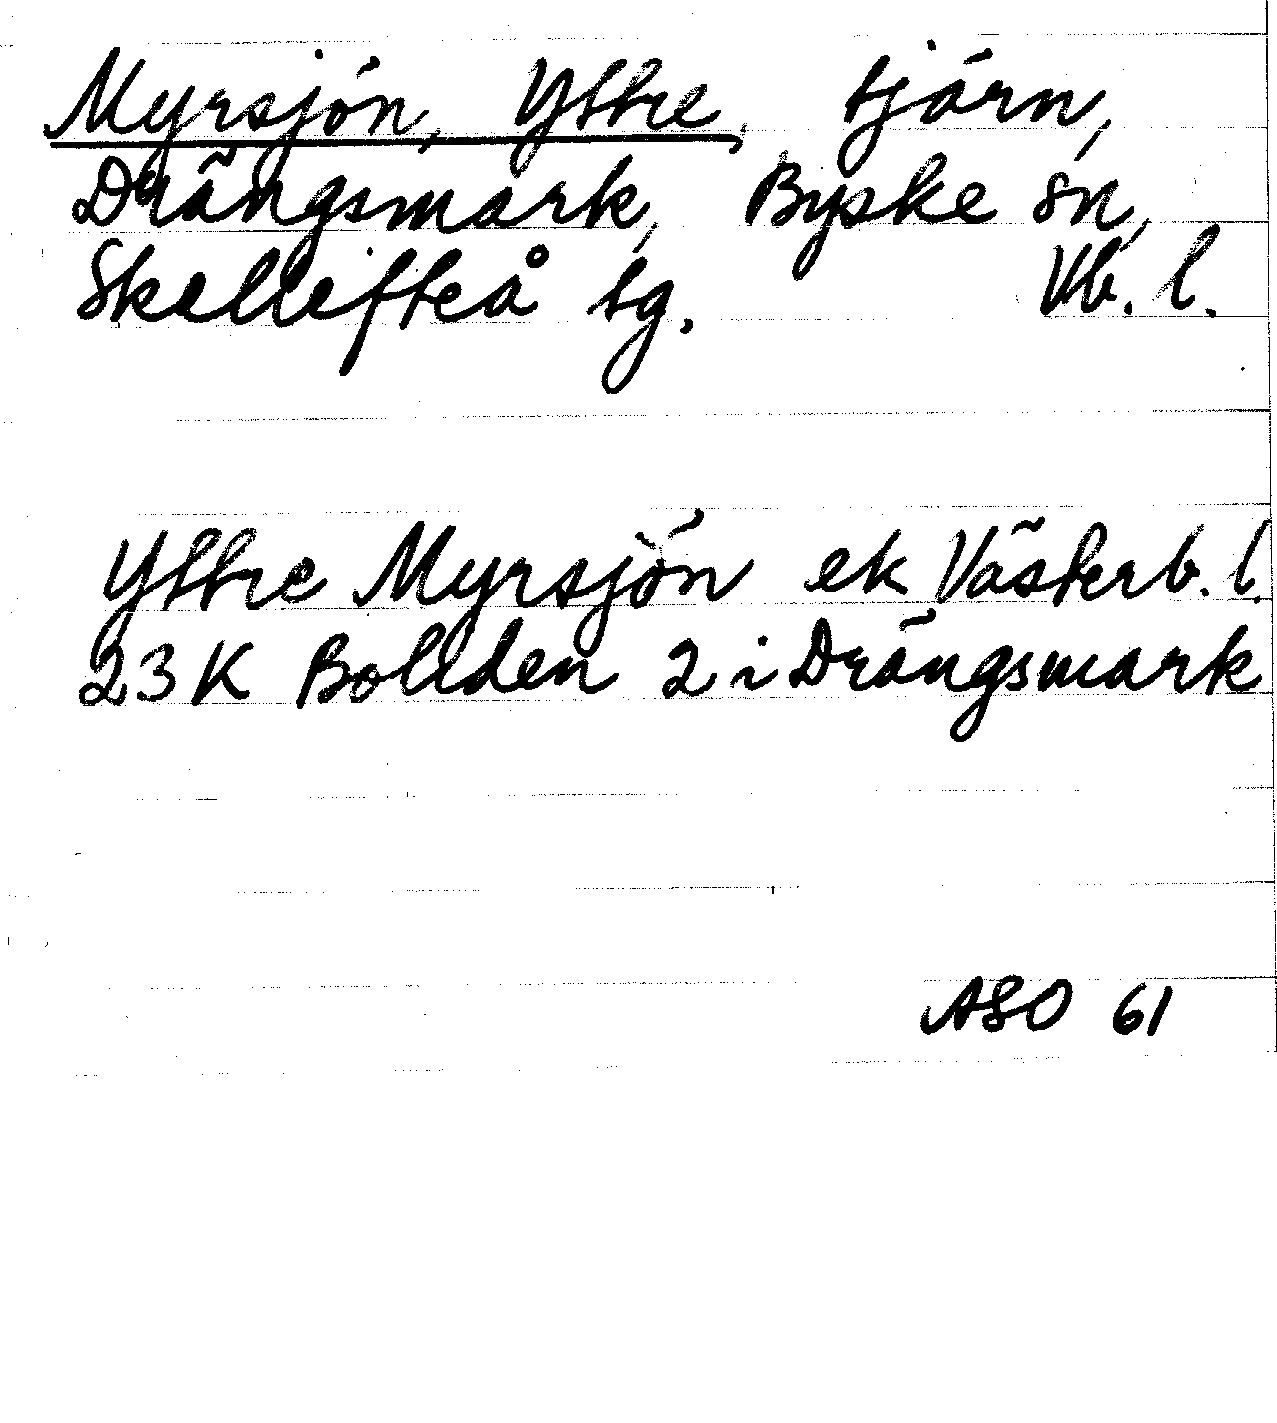 Myrsjön, Yttre, tjärn,
Drängsmark, Byske sn,
Skellefteå tg. Vb. l.
Yttre Myrsjön ek Västerb. l.
23 K Boliden 2 i Drängsmark
ASO 61